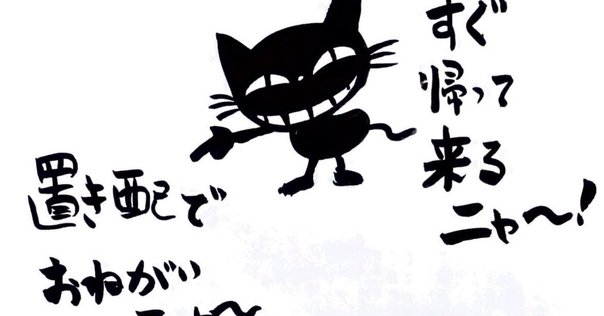 すぐ
帰って
来る
ニャ〜!
置き配で
おねがい